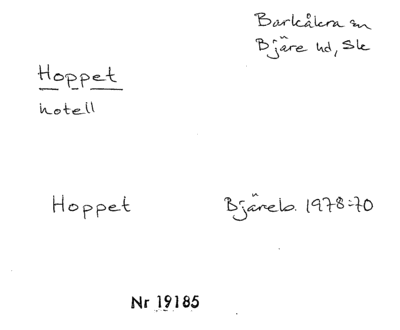 Barkåkra sn
Bjäre hd, Sk
Hoppet
hotell
Hoppet Bjäreb. 1978:70
Nr 19185